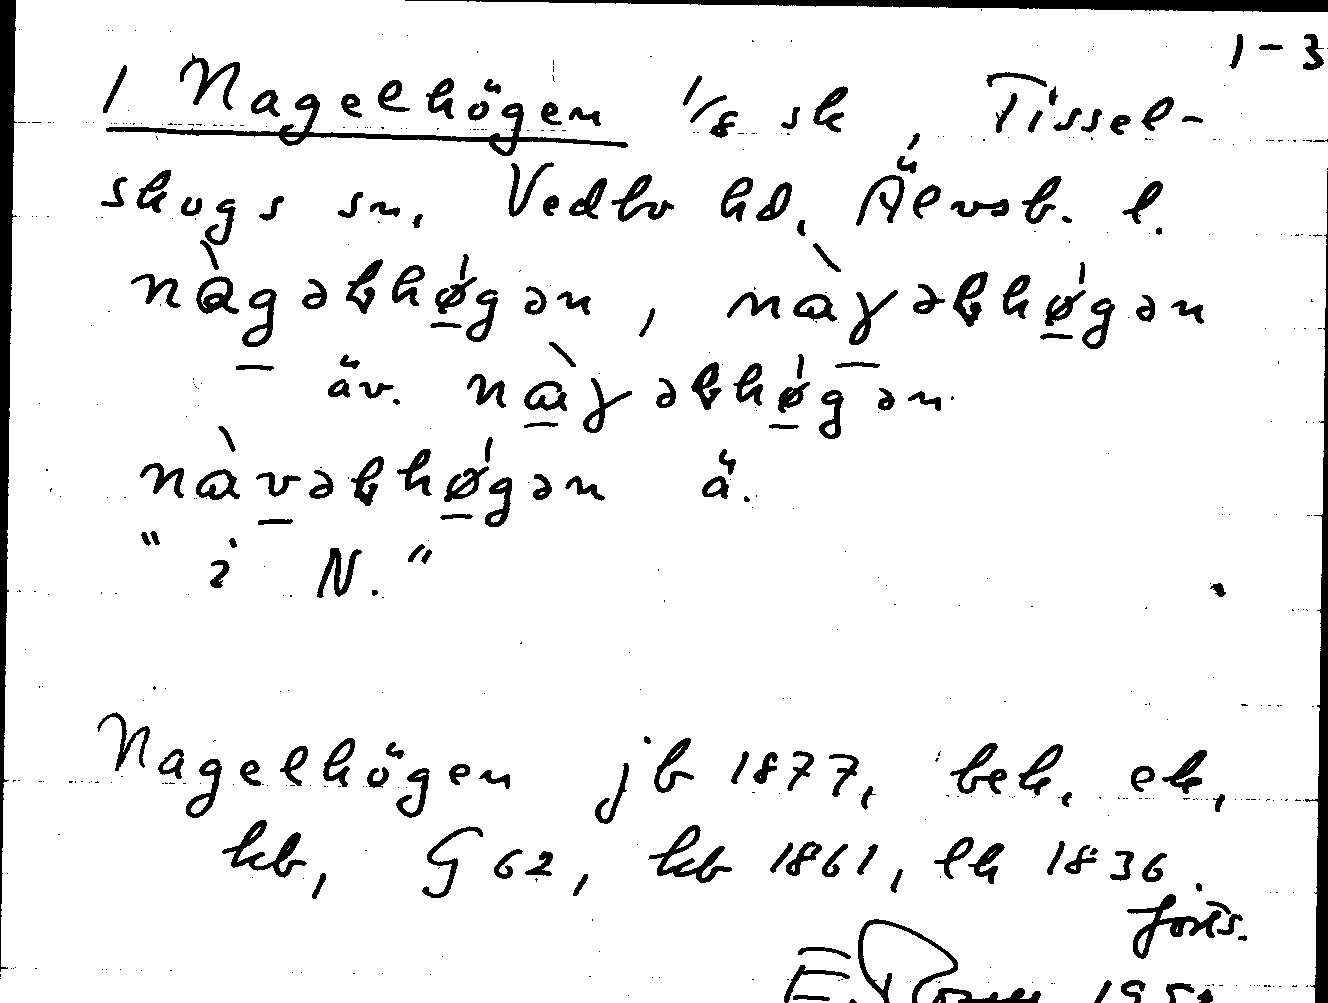 1-3
1 Nagelhögen 1/8 sk, Tissel-
skogs sn, Vedbo hd, Älvsb. l.
nàgəɫhǿgən, nàɣəɫhǿgən
äv. nàɣəɫhǿgən
nàvəɫhǿgən ä.
"i N."
Nagelhögen jb 1877, bek, ek,
kb, G 62, kb 1861, lh 1836.
forts.
E.